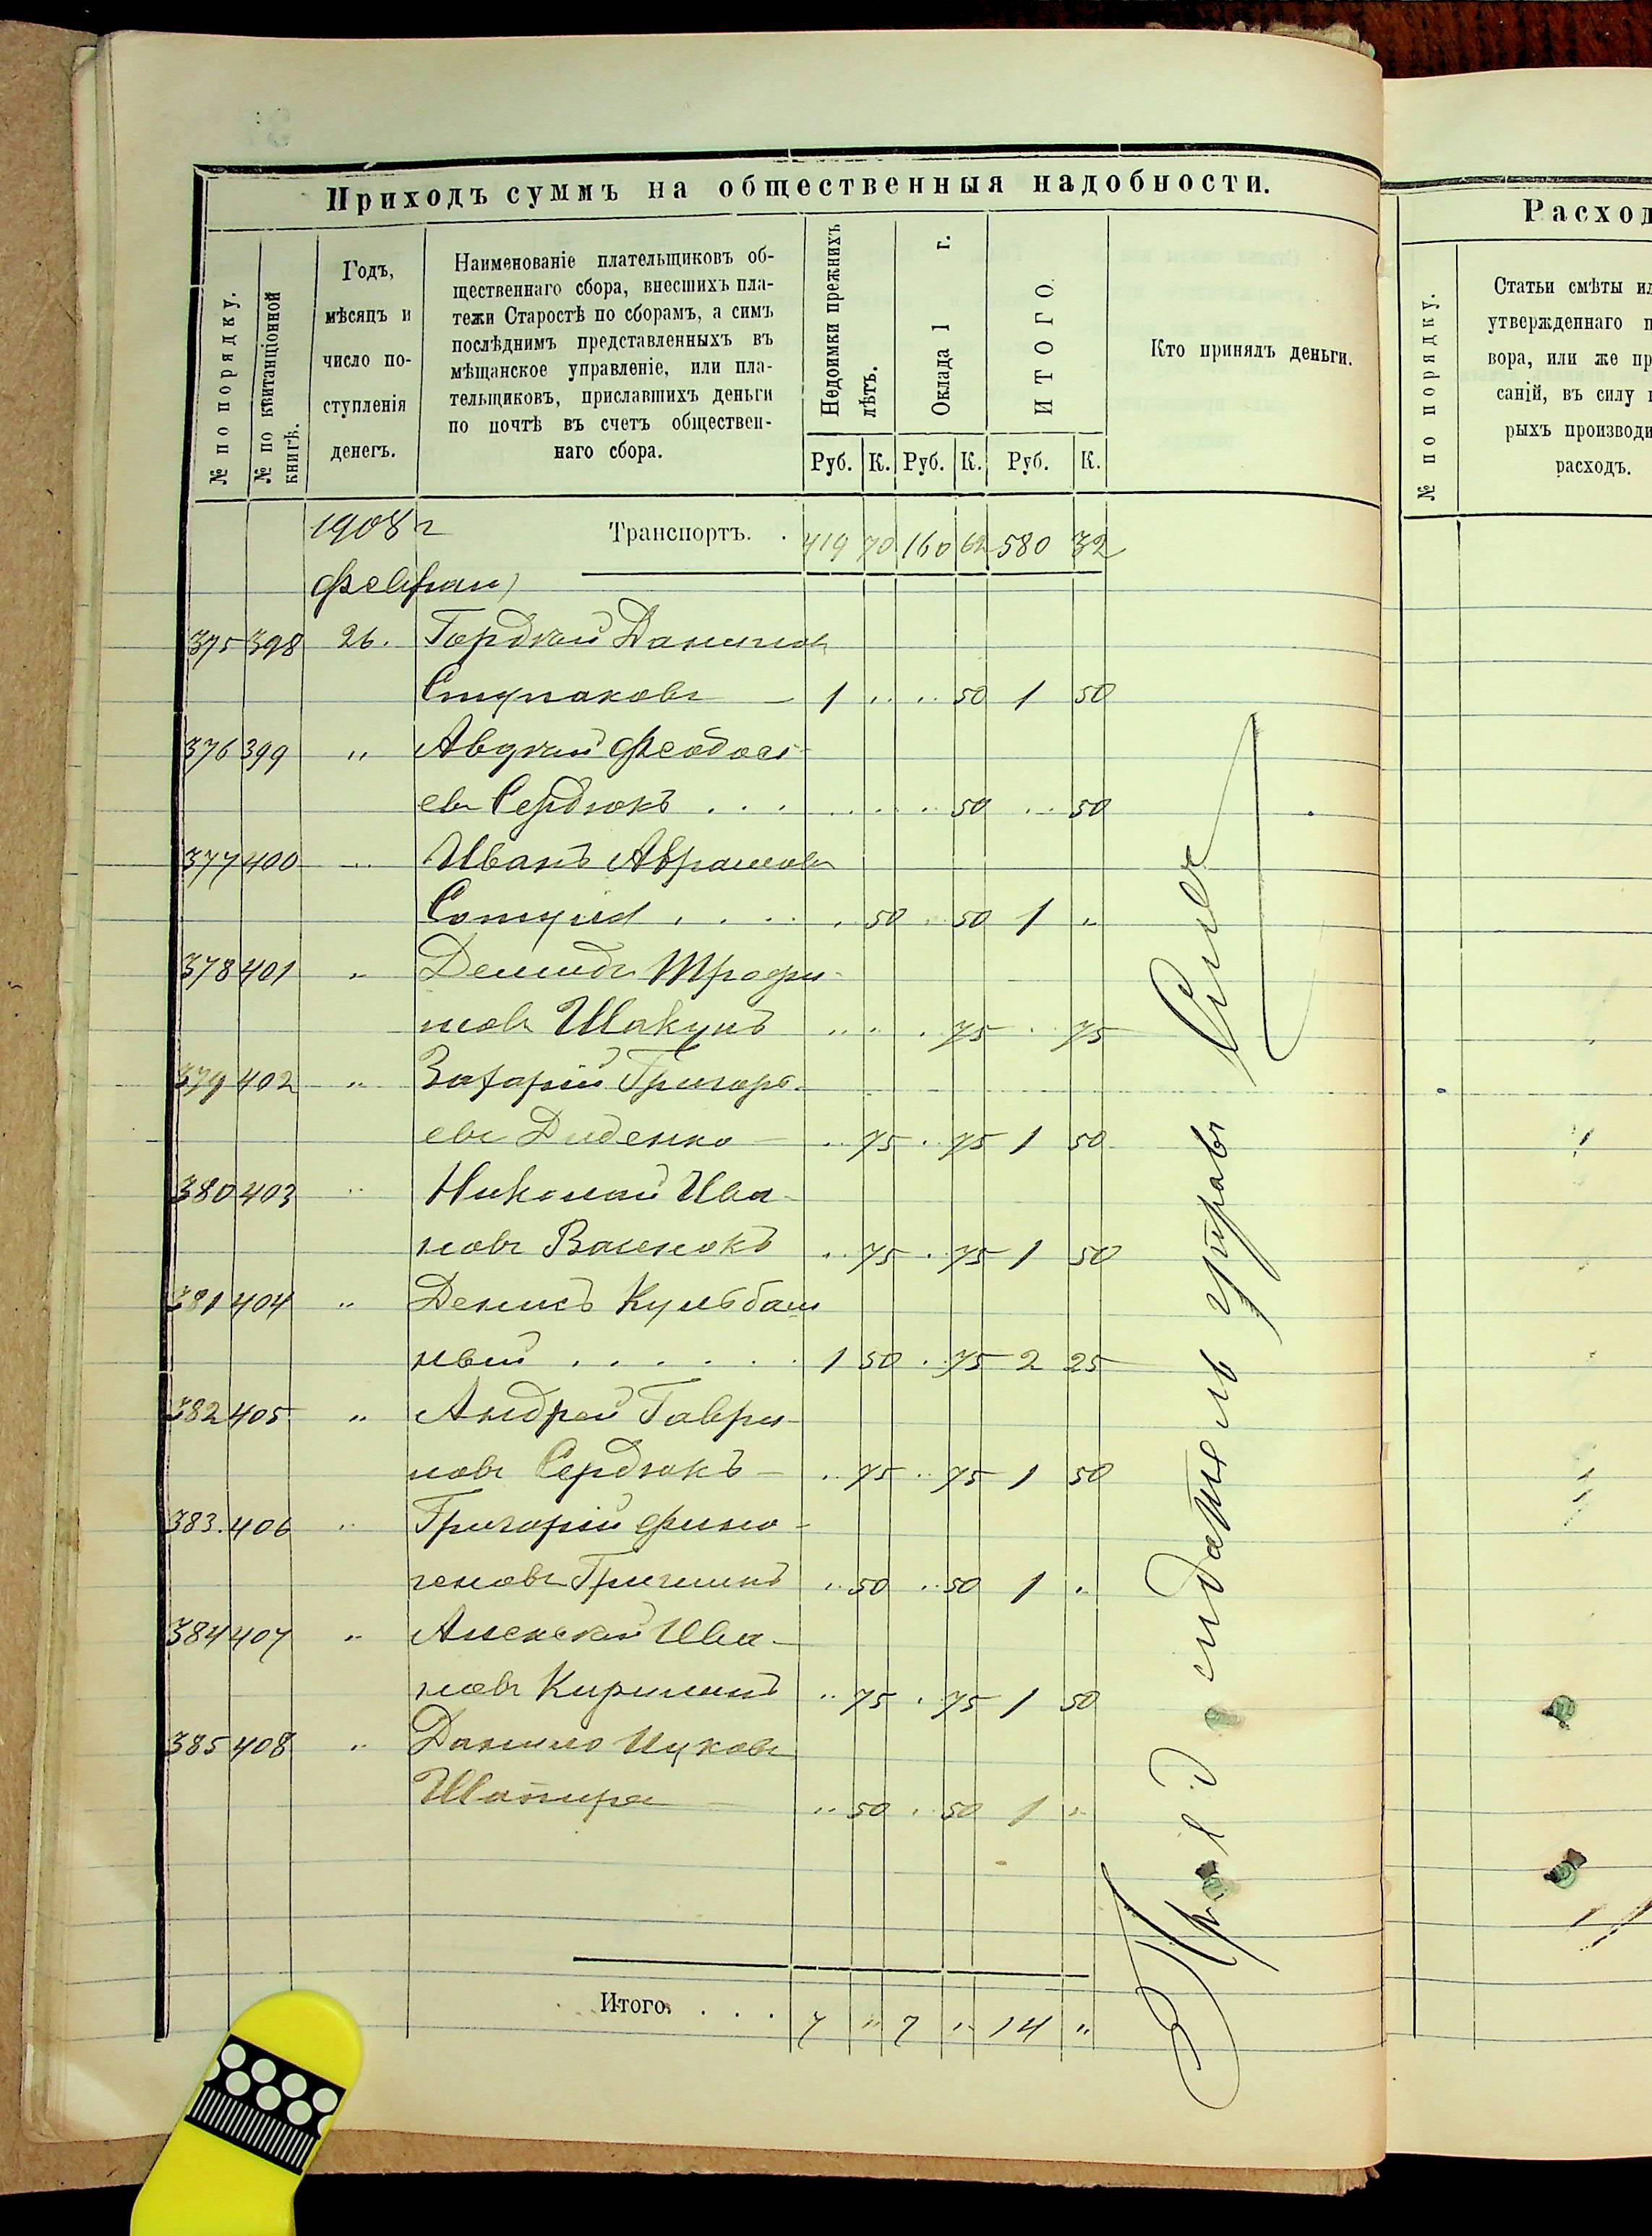 Приходъ суммъ на общественныя надобности.
№ по порядку.
№ по квитанціонной книгѣ.
Годъ,
мѣсяцъ и
число по-
ступленія
денегъ.
Наименованіе плательщиковъ об-
щественнаго сбора, внесшихъ пла-
тежи Старостѣ по сборамъ, а симъ
послѣднимъ представленныхъ въ
мѣщанское управленіе, или пла-
тельщиковъ, приславшихъ деньги
по почтѣ въ счетъ обществен-
наго сбора.
Недоимки прежнихъ лѣтъ.
Оклада 1 г.
ИТОГО
Кто принялъ деньги.
Руб. К. Руб. К. Руб. К.
1908 г Транспортъ. . 419 70 160 62 580 32
Феврал
375 398 26. Гордѣй Данилов
Ступаковъ — 1 „ „ 50 1 50
376 399 „ Авдѣй Феодось-
евъ Сердюкъ . . . . . . 50 . . 50
377 400 „ Иванъ Аврамовъ
. . . . 50 . 50 1 „
378 401 „ Демидъ Трофи-
мовъ Шакунъ „ „ . 75 . 75
379 402 „ Захарій Григорь-
евъ Диденко — „ 75 . 75 1 50
380 403 „ Николай Ива-
новъ Васюкъ „ 75 . 75 1 50
381 404 „ Денисъ Кульбаш
ный . . . . . . 1 50 . 75 2 25
382 405 „ Андрей Гаври-
ловъ Сердюкъ — „ 75 „ 75 1 50
383. 406 „ Григорій Фино-
геновъ „ 50 „ 50 1 „
384 407 „ Алексѣй Ива-
новъ Кирилинъ „ 75 . 75 1 50
385 408 „ Данило Ицковъ
Шапира — „ 50 . 50 1 „
Итого. . . . 7 „ 7 „ 14 „
управы
Расход
№ по порядку.
Статьи смѣты ил
утвержденнаго п
вора, или же пр
саній, въ силу к
рыхъ производи
расходъ.